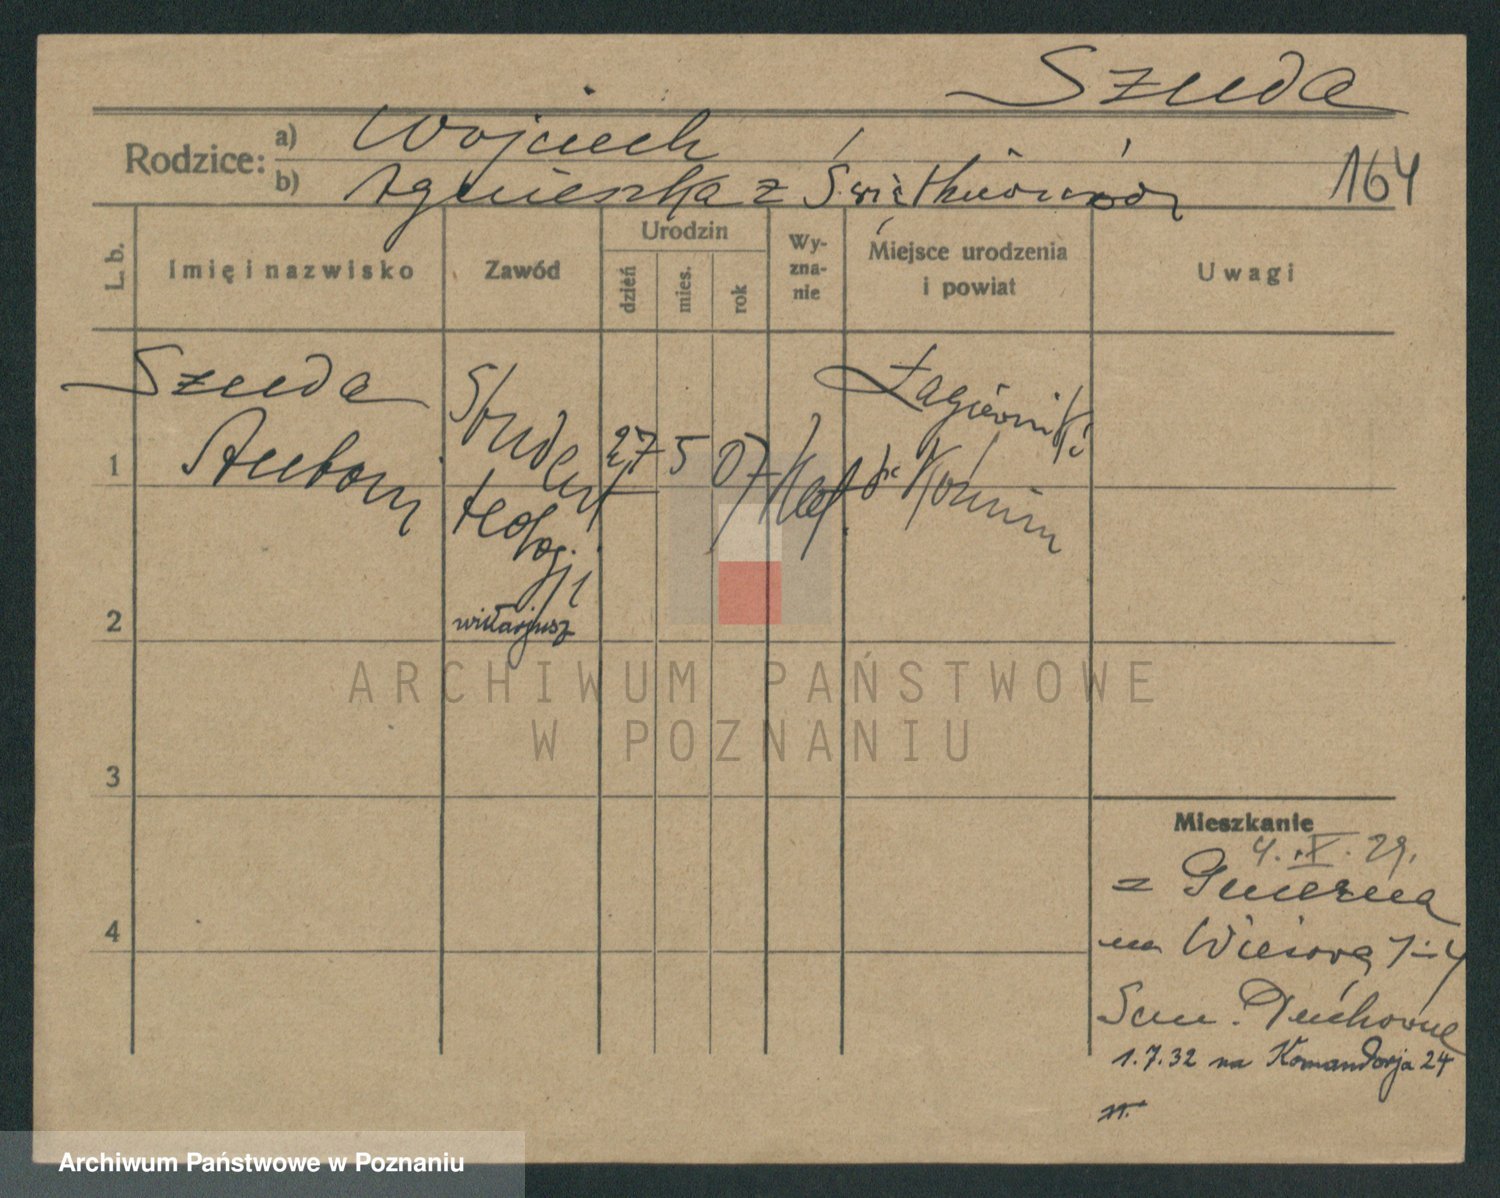 Szuda
Rodzice:
a) Wojciech
b) Agnieszka z Świetkiewiczów
164
L. b.
Imię i nazwisko
Zawód
Urodzin
dzień
mies.
rok
Wy-
zna-
nie
Miejsce urodzenia
i powiat
Uwagi
1
Szuda
Antoni
Student
teologji
wikarjusz
27
5
07
Kat.
Łagiewniki
Koźmin
2
3
4
Mieszkanie
4. X. 29.
z Gniezna
na Wieżową 1-4
Sem. Duchowne
1.7.32 na Komandorja 24
ARCHIWUM PAŃSTWOWE
W POZNANIU
Archiwum Państwowe w Poznaniu